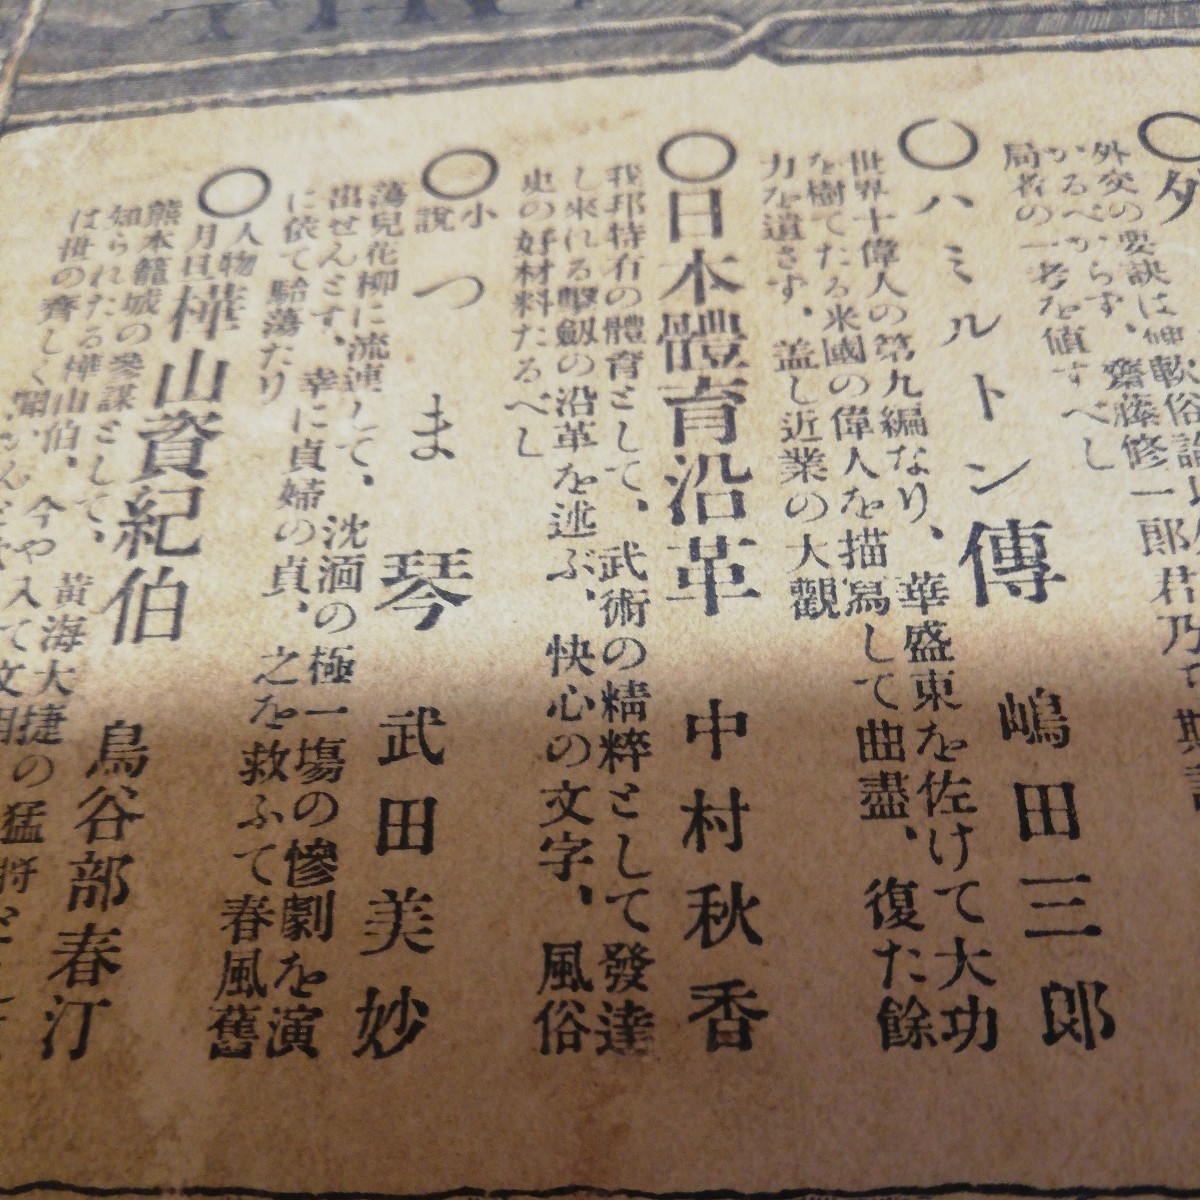 外交の要訣は
かるべからず、齋藤修一郎君乃
局者の一考を値すべし
○ハミルトン傳 嶋田三郎
世界十偉人の第九編なり、華盛東を佐けて大功
を樹てたる米國の偉人を描寫して曲盡、復た餘
力を遺さず、盖し近業の大觀
○日本體育沿革 中村秋香
我邦特有の體育として、武術の精粹として發達
し來れる擊劔の沿革を述ぶ、快心の文字、風俗
史の好材料たるべし
○小説 つま琴 武田美妙
蕩兒花柳に流連して、沈湎の極一塲の慘劇を演
出せんとす、幸に貞婦の貞、之を救ふて春風舊
に依て駘蕩たり
○人物月旦 樺山資紀伯 鳥谷部春汀
熊本籠城の參謀として、黃海大捷の猛將として
知られたる樺山伯、今や入て文
は世の齊しく聞